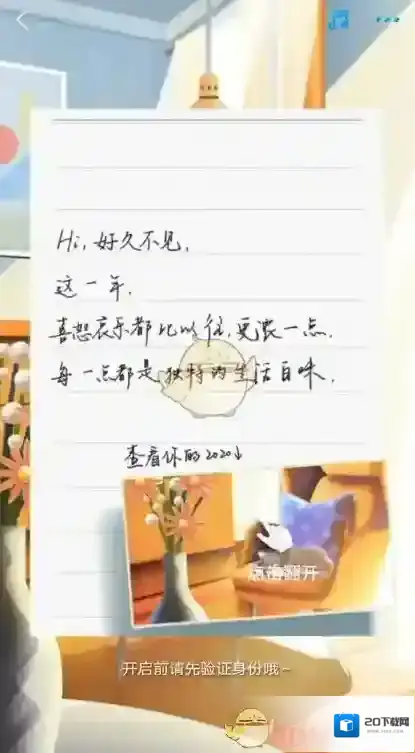 Hi,好久不见,
这一年,
喜怒哀乐都比以往,更浓一点,
每一点都是独特的生活百味,
查看你的2020↓
点击翻开
开启前请先验证身份哦~
20下载网